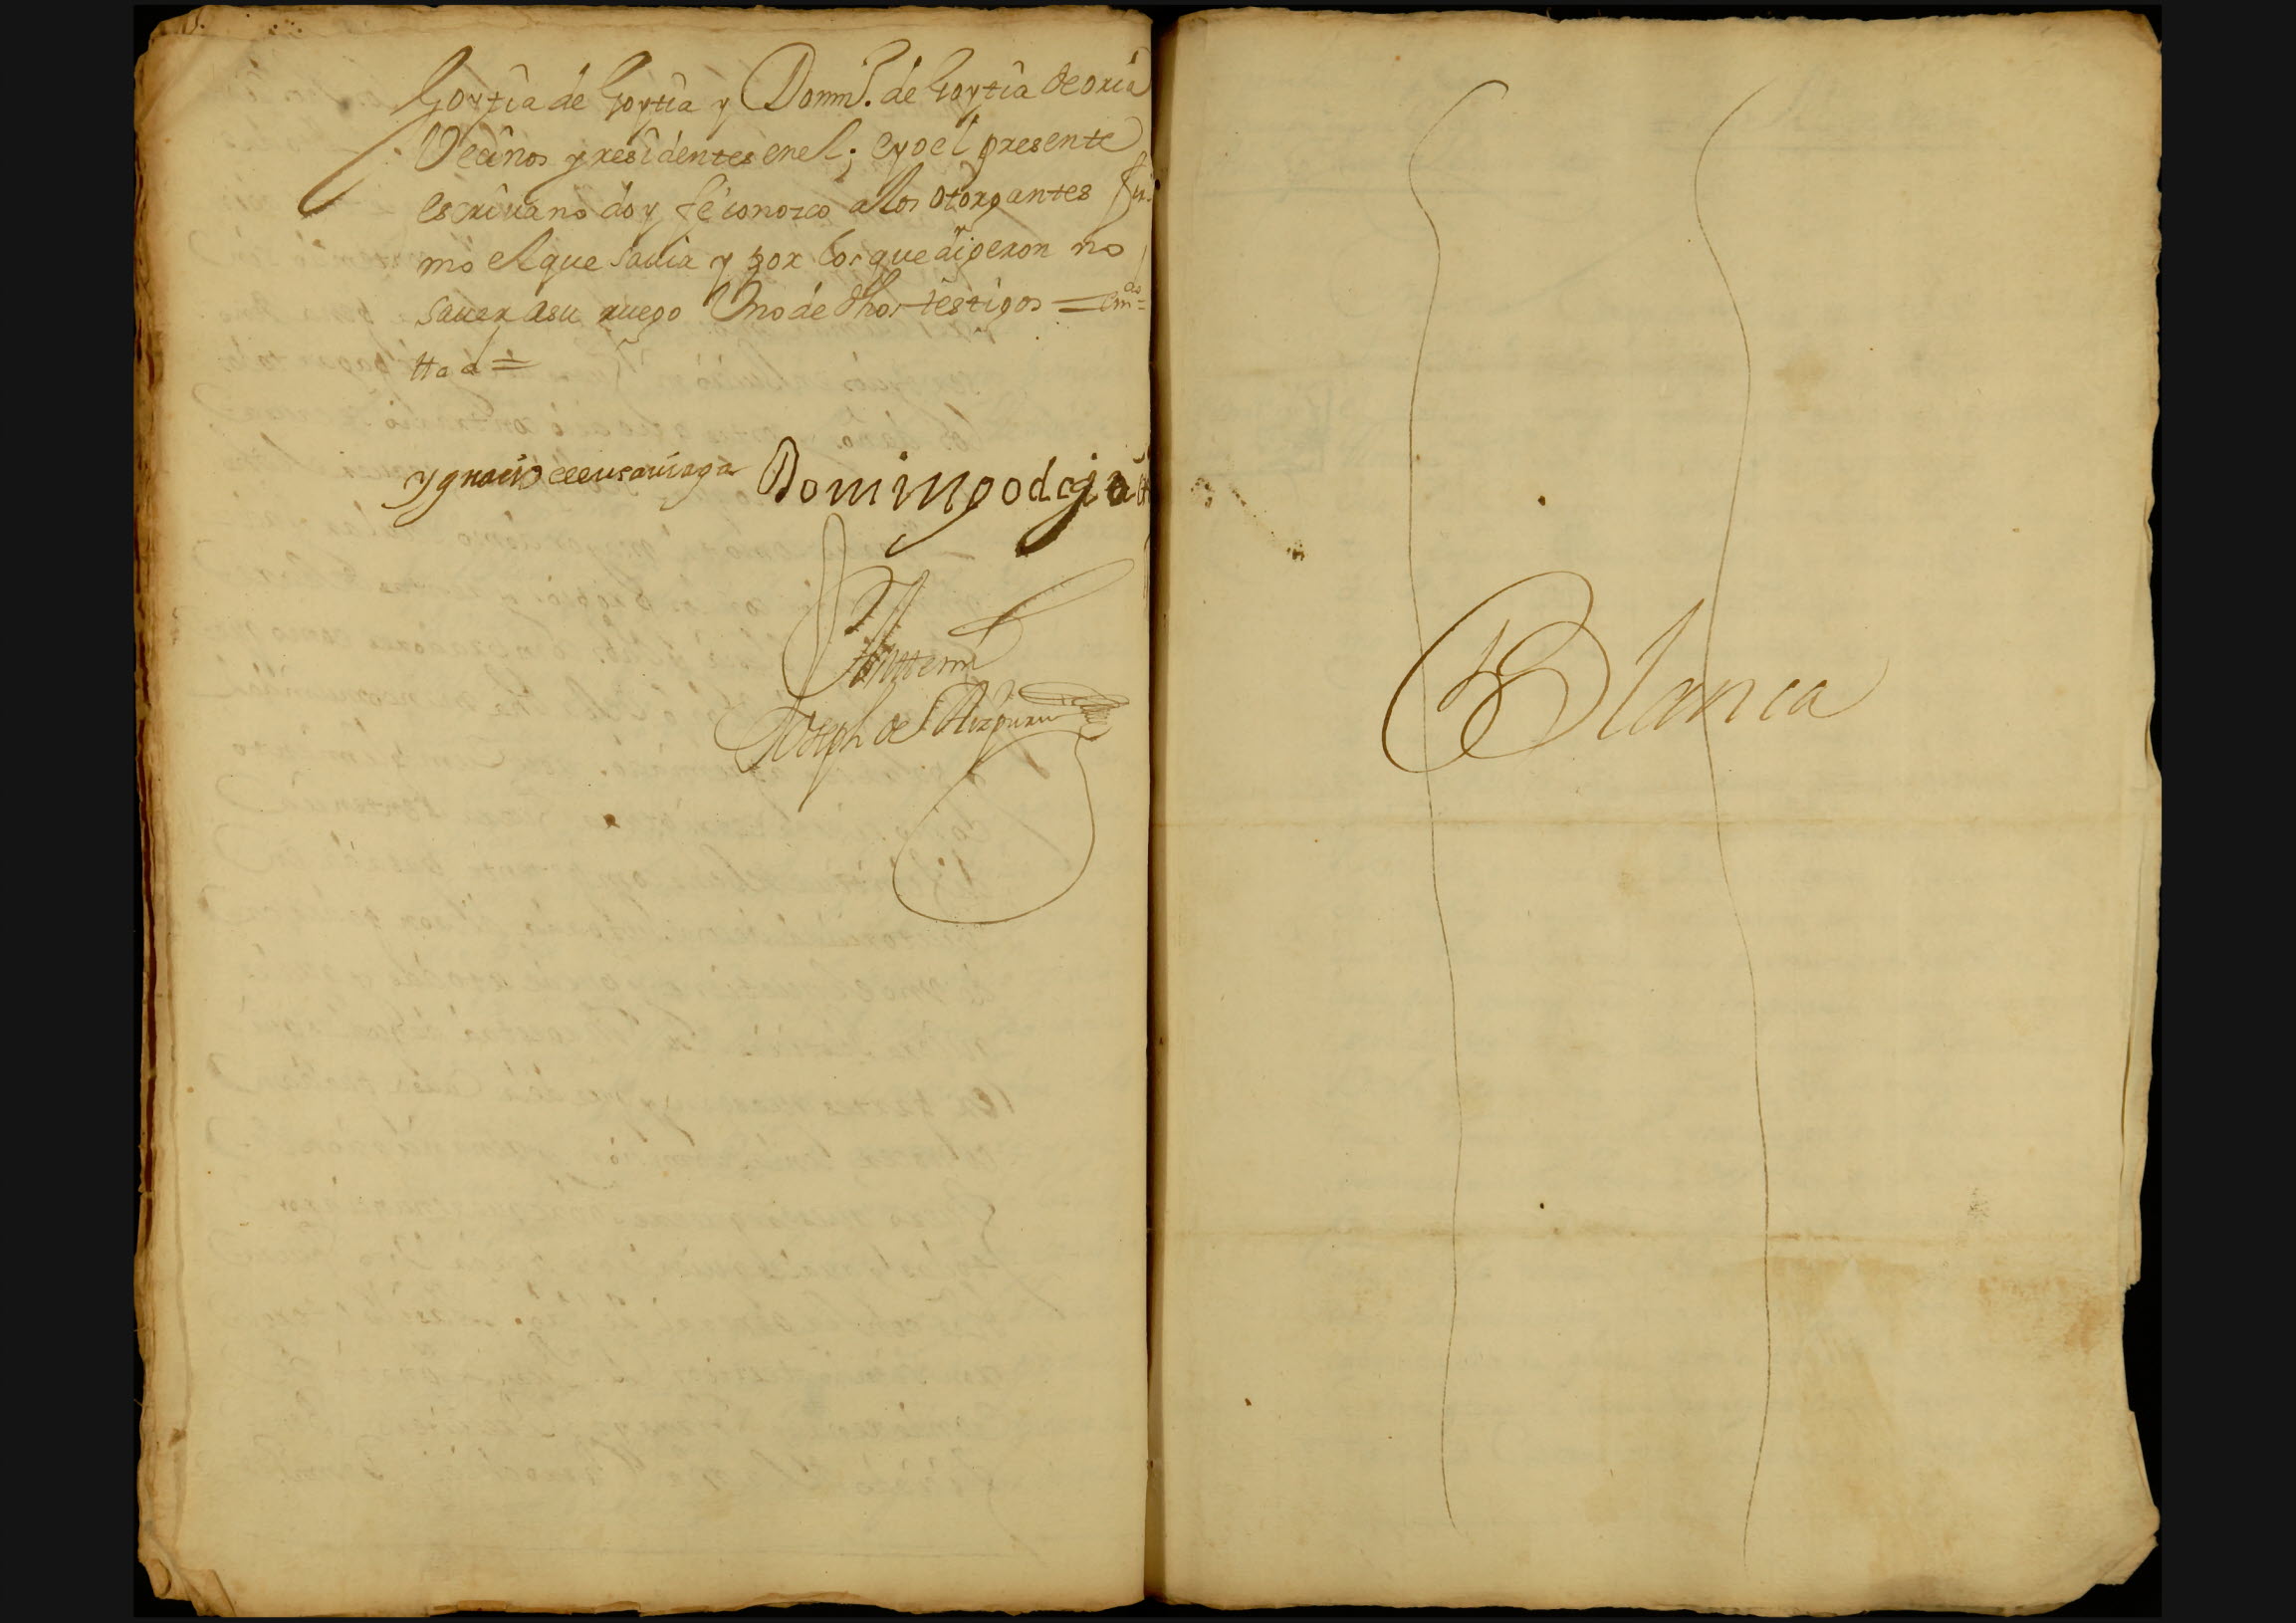 Goytia de Goytia y Domin.º de Goytia de oria
Vecinos y residentes en el; e yo el presente
escriuano doy fe conozco a los otorgantes fir
mo el que sauia y por los que digeron no
sauer a su ruego Vno de dhos testigos = em.do =
tta d =
Ygnacio
Domingo de
Antte mi
Joseph de Aizpuru
Blanca